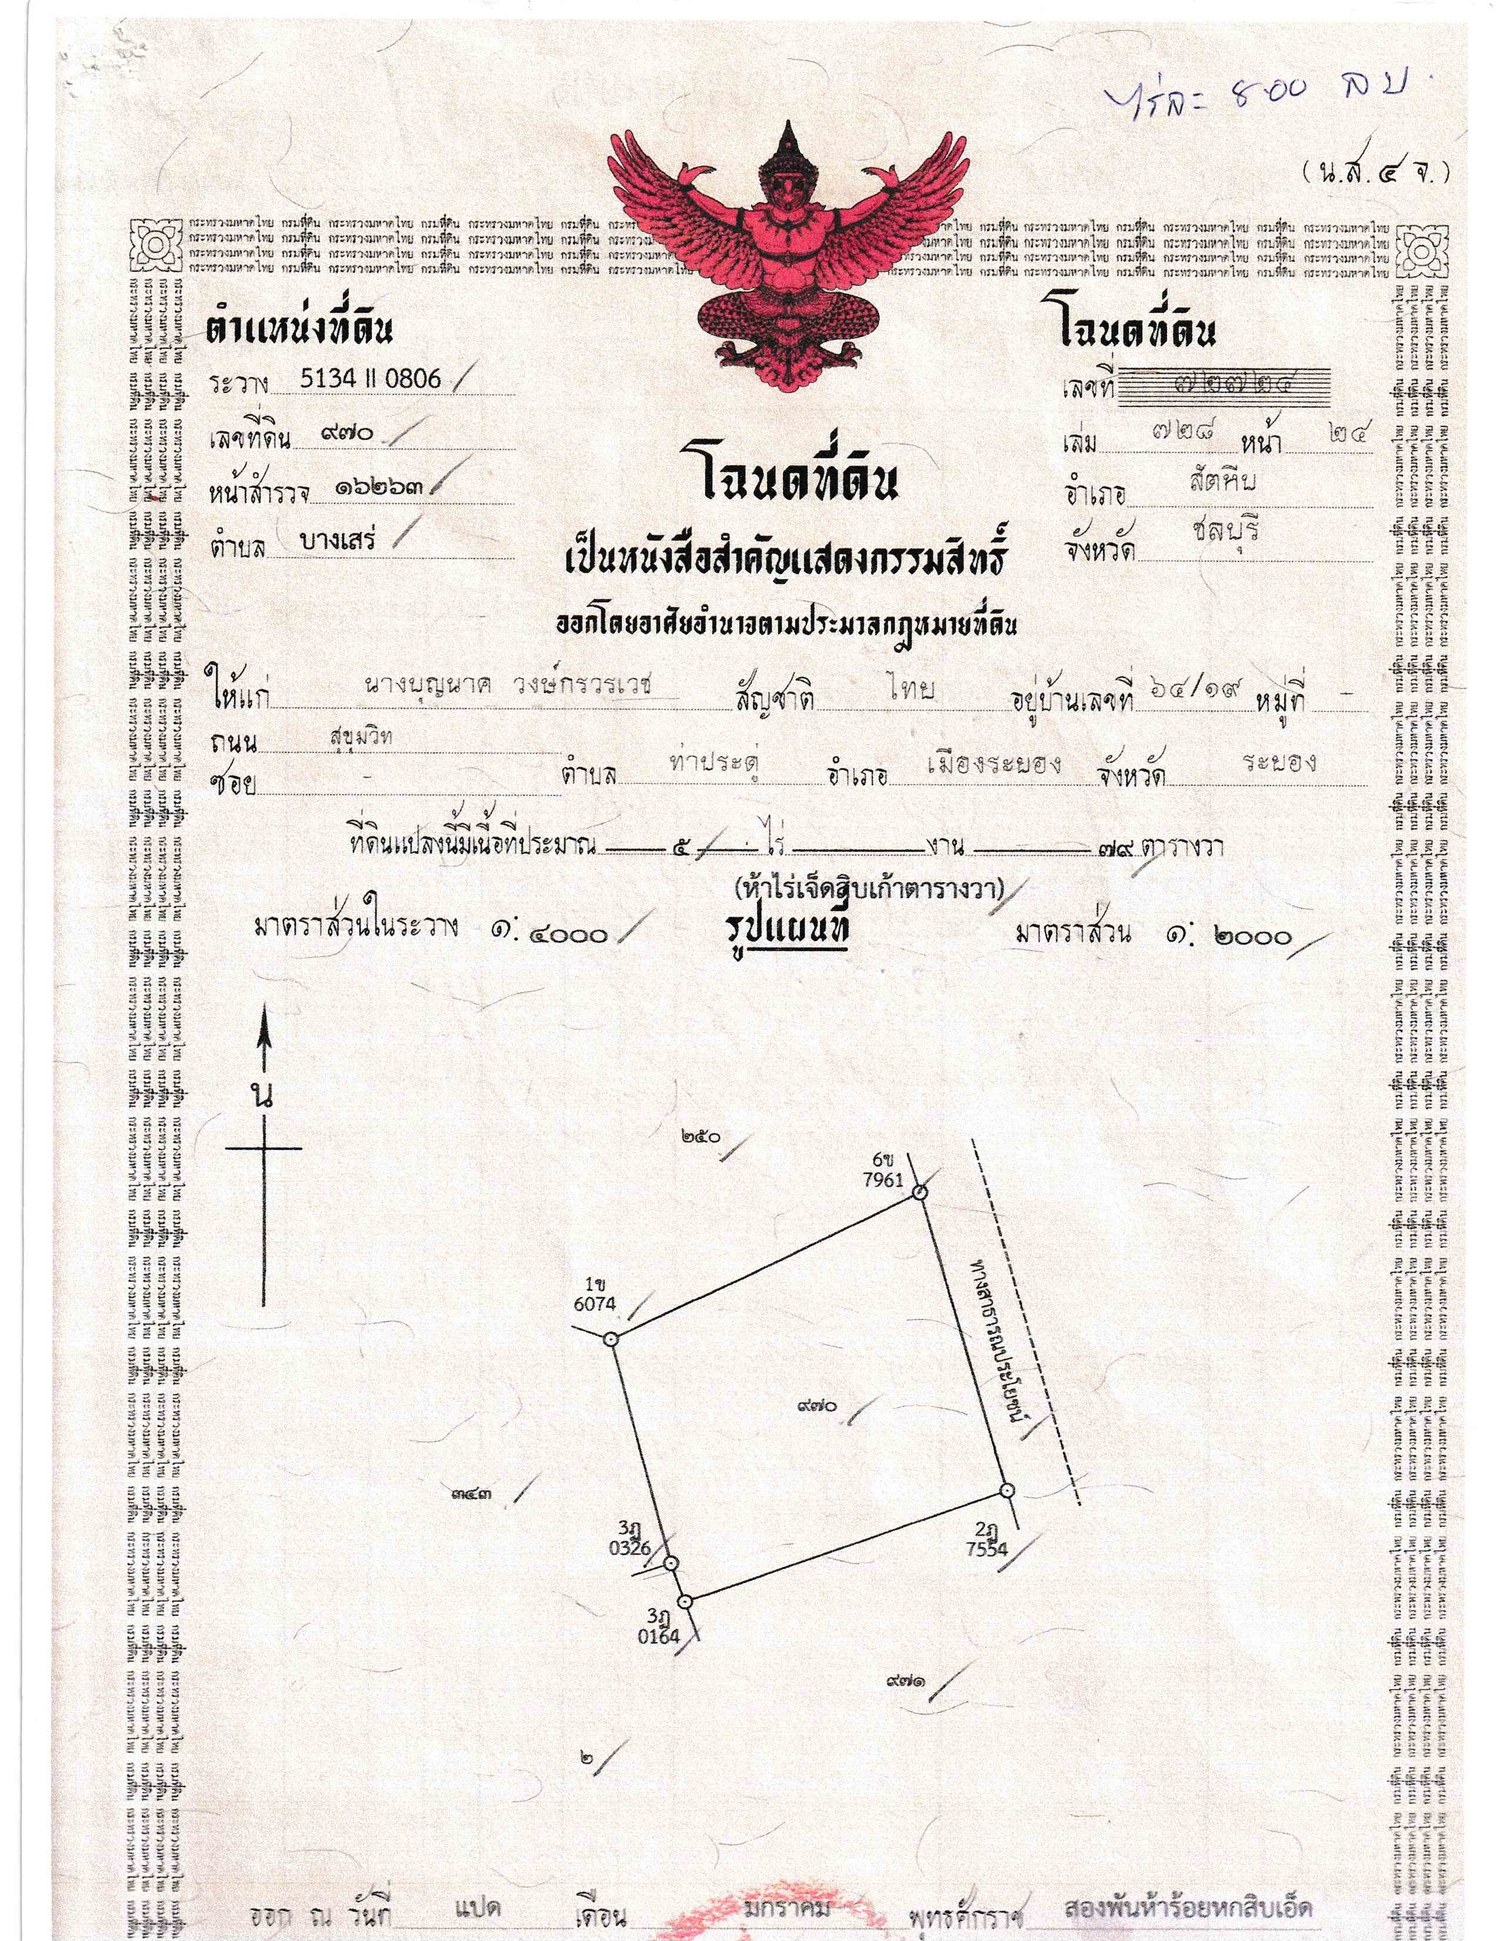 ไร่ละ 8.00 ลบ.
(น.ส.๔ จ.)
กระทรวงมหาดไทย กรมที่ดิน กระทรวงมหาดไทย กรมที่ดิน กระทรวงมหาดไทย กรมที่ดิน
ตำแหน่งที่ดิน
โฉนดที่ดิน
ระวาง 5134 II 0806
เลขที่ ๗๒๗๒๔
เลขที่ดิน ๙๗๐
เล่ม ๗๒๘ หน้า ๒๔
หน้าสำรวจ ๑๖๒๖๓
อำเภอ สัตหีบ
ตำบล บางเสร่
จังหวัด ชลบุรี
โฉนดที่ดิน
เป็นหนังสือสำคัญแสดงกรรมสิทธิ์
ออกโดยอาศัยอำนาจตามประมวลกฎหมายที่ดิน
ให้แก่ นางบุญนาค วงษ์กรวรเวช สัญชาติ ไทย อยู่บ้านเลขที่ ๖๔/๑๙ หมู่ที่ -
ถนน สุขุมวิท
ซอย - ตำบล ท่าประดู่ อำเภอ เมืองระยอง จังหวัด ระยอง
ที่ดินแปลงนี้มีเนื้อที่ประมาณ ๕ ไร่ งาน ๗๙ ตารางวา
(ห้าไร่เจ็ดสิบเก้าตารางวา)
มาตราส่วนในระวาง ๑: ๔๐๐๐ รูปแผนที่ มาตราส่วน ๑: ๒๐๐๐
น
๒๕๐
6ข
7961
1ข
6074
ทางสาธารณประโยชน์
๙๗๐
๓๔๓
3ฎ
0326
2ฎ
7554
3ฎ
0164
๙๗๑
๒
ออก ณ วันที่ แปด เดือน มกราคม พุทธศักราช สองพันห้าร้อยหกสิบเอ็ด